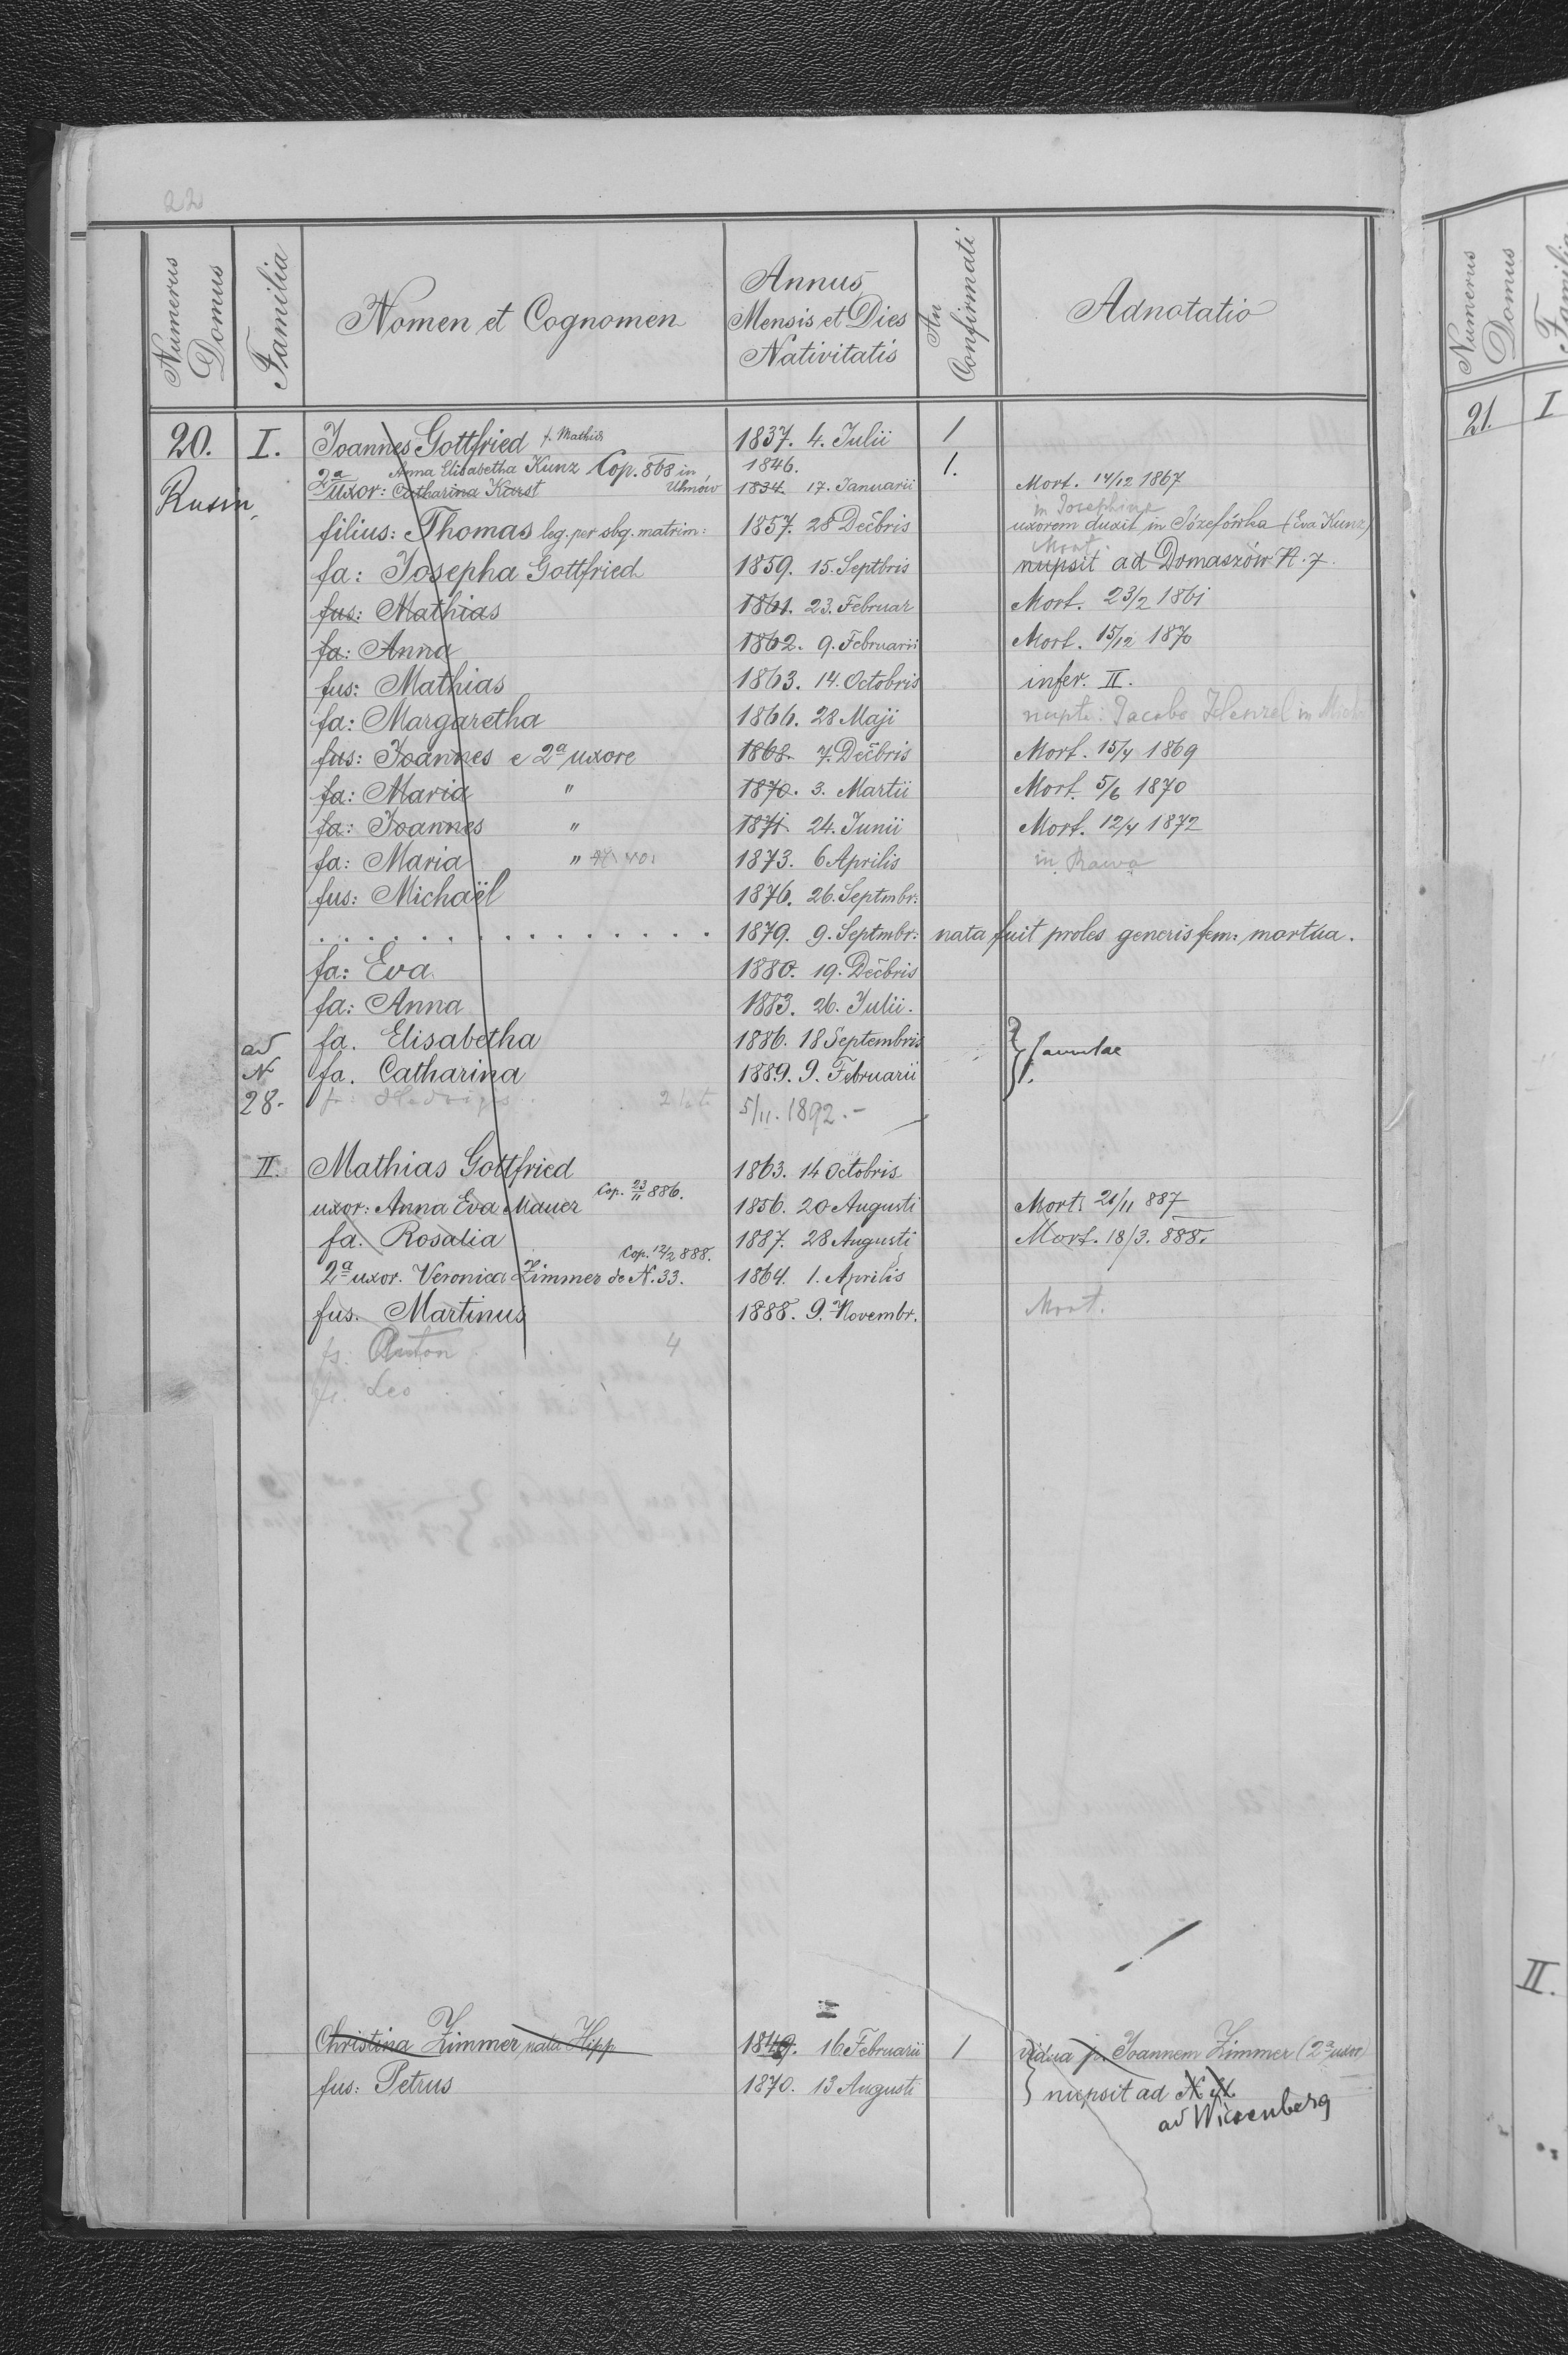 22
Numerus Domus Familia Nomen et Cognomen Annus Mensis et Dies Nativitatis An Confirmati Adnotatio
20. I. Joannes Gottfried f. Mathiæ 1837. 4. Julii 1
Anna Elisabetha Kunz Cop. 868 in Uhnów 1846. 1.
2a uxor: Catharina Karst 1834. 17. Januarii Mort. 14/12 1867
Rusin in Josephine
filius: Thomas leg. per sbq. matrim: 1857. 28 Decbris uxorem duxit in Józefówka (Eva Kunz)
Mort.
fa: Josepha Gottfried 1859. 15. Septbris nupsit ad Domaszów N. 7.
fus: Mathias 1861. 23. Februar Mort. 23/2 1861
fa: Anna 1862. 9. Februarii Mort. 15/12 1870
fus: Mathias 1863. 14. Octobris infer. II.
fa: Margaretha 1866. 28 Maji nupta: Jacobo Henzel in
fus: Joannes e 2a uxore 1868. 7. Decbris Mort. 15/4 1869
fa: Maria " 1870. 3. Martii Mort. 5/6 1870
fa: Joannes " 1871. 24. Junii Mort. 12/4 1872
fa: Maria " 1873. 6 Aprilis in Rawa
fus: Michaël 1876. 26. Septmbr:
. . . . . . . . . . . . . . . 1879. 9. Septmbr: nata fuit proles generis fem: mortua.
fa: Eva 1880. 19. Decbris
fa: Anna 1883. 26. Julii.
ad fa. Elisabetha 1886. 18 Septembris } famulae
N fa. Catharina 1889. 9. Februarii
28. fa: Hedvigis 5/11. 1892.-
II. Mathias Gottfried 1863. 14 Octobris
uxor: Anna Eva Mauer Cop. 23/11 886. 1856. 20 Augusti Mort. 21/11 887
fa. Rosalia 1887. 28 Augusti Mort. 18/3. 888.
Cop. 12/2 888.
2a uxor. Veronica Zimmer de N. 33. 1864. 1. Aprilis
fus. Martinus 1888. 9. Novembr. Mort.
fs: Anton 4
fs. Leo
Christina Zimmer, nata Hipp 1849. 16 Februarii 1 vidua p. Joannem Zimmer (2a uxor)
fus: Petrus 1870. 13 Augusti } nupsit ad N
ad Wiesenberg
Numerus Domus Familia
21. I
II.